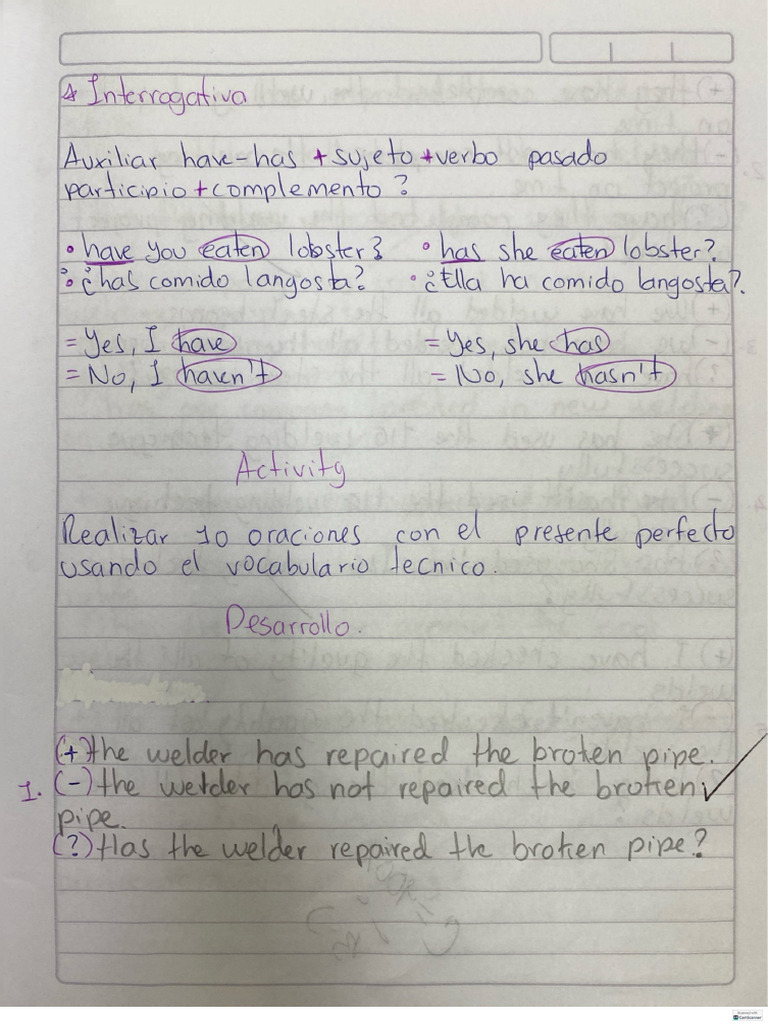 * Interrogativa
Auxiliar have-has + sujeto + verbo pasado
participio + complemento?
• have you eaten lobster? • has she eaten lobster?
• ¿has comido langosta? • ¿Ella ha comido langosta?.
= Yes, I have = Yes, she has
= No, I haven't = No, she hasn't
Activity
Realizar 10 oraciones con el presente perfecto
usando el vocabulario tecnico.
Desarrollo.
(+) the welder has repaired the broken pipe.
1. (-) the welder has not repaired the broken
pipe.
(?) Has the welder repaired the broken pipe?
CamScanner